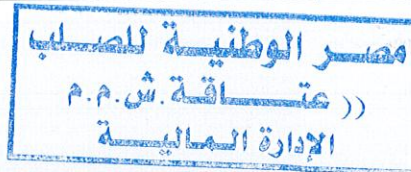 مصر الوطنية للصلب
(( عتاقة . ش . م . م
الإدارة المالية